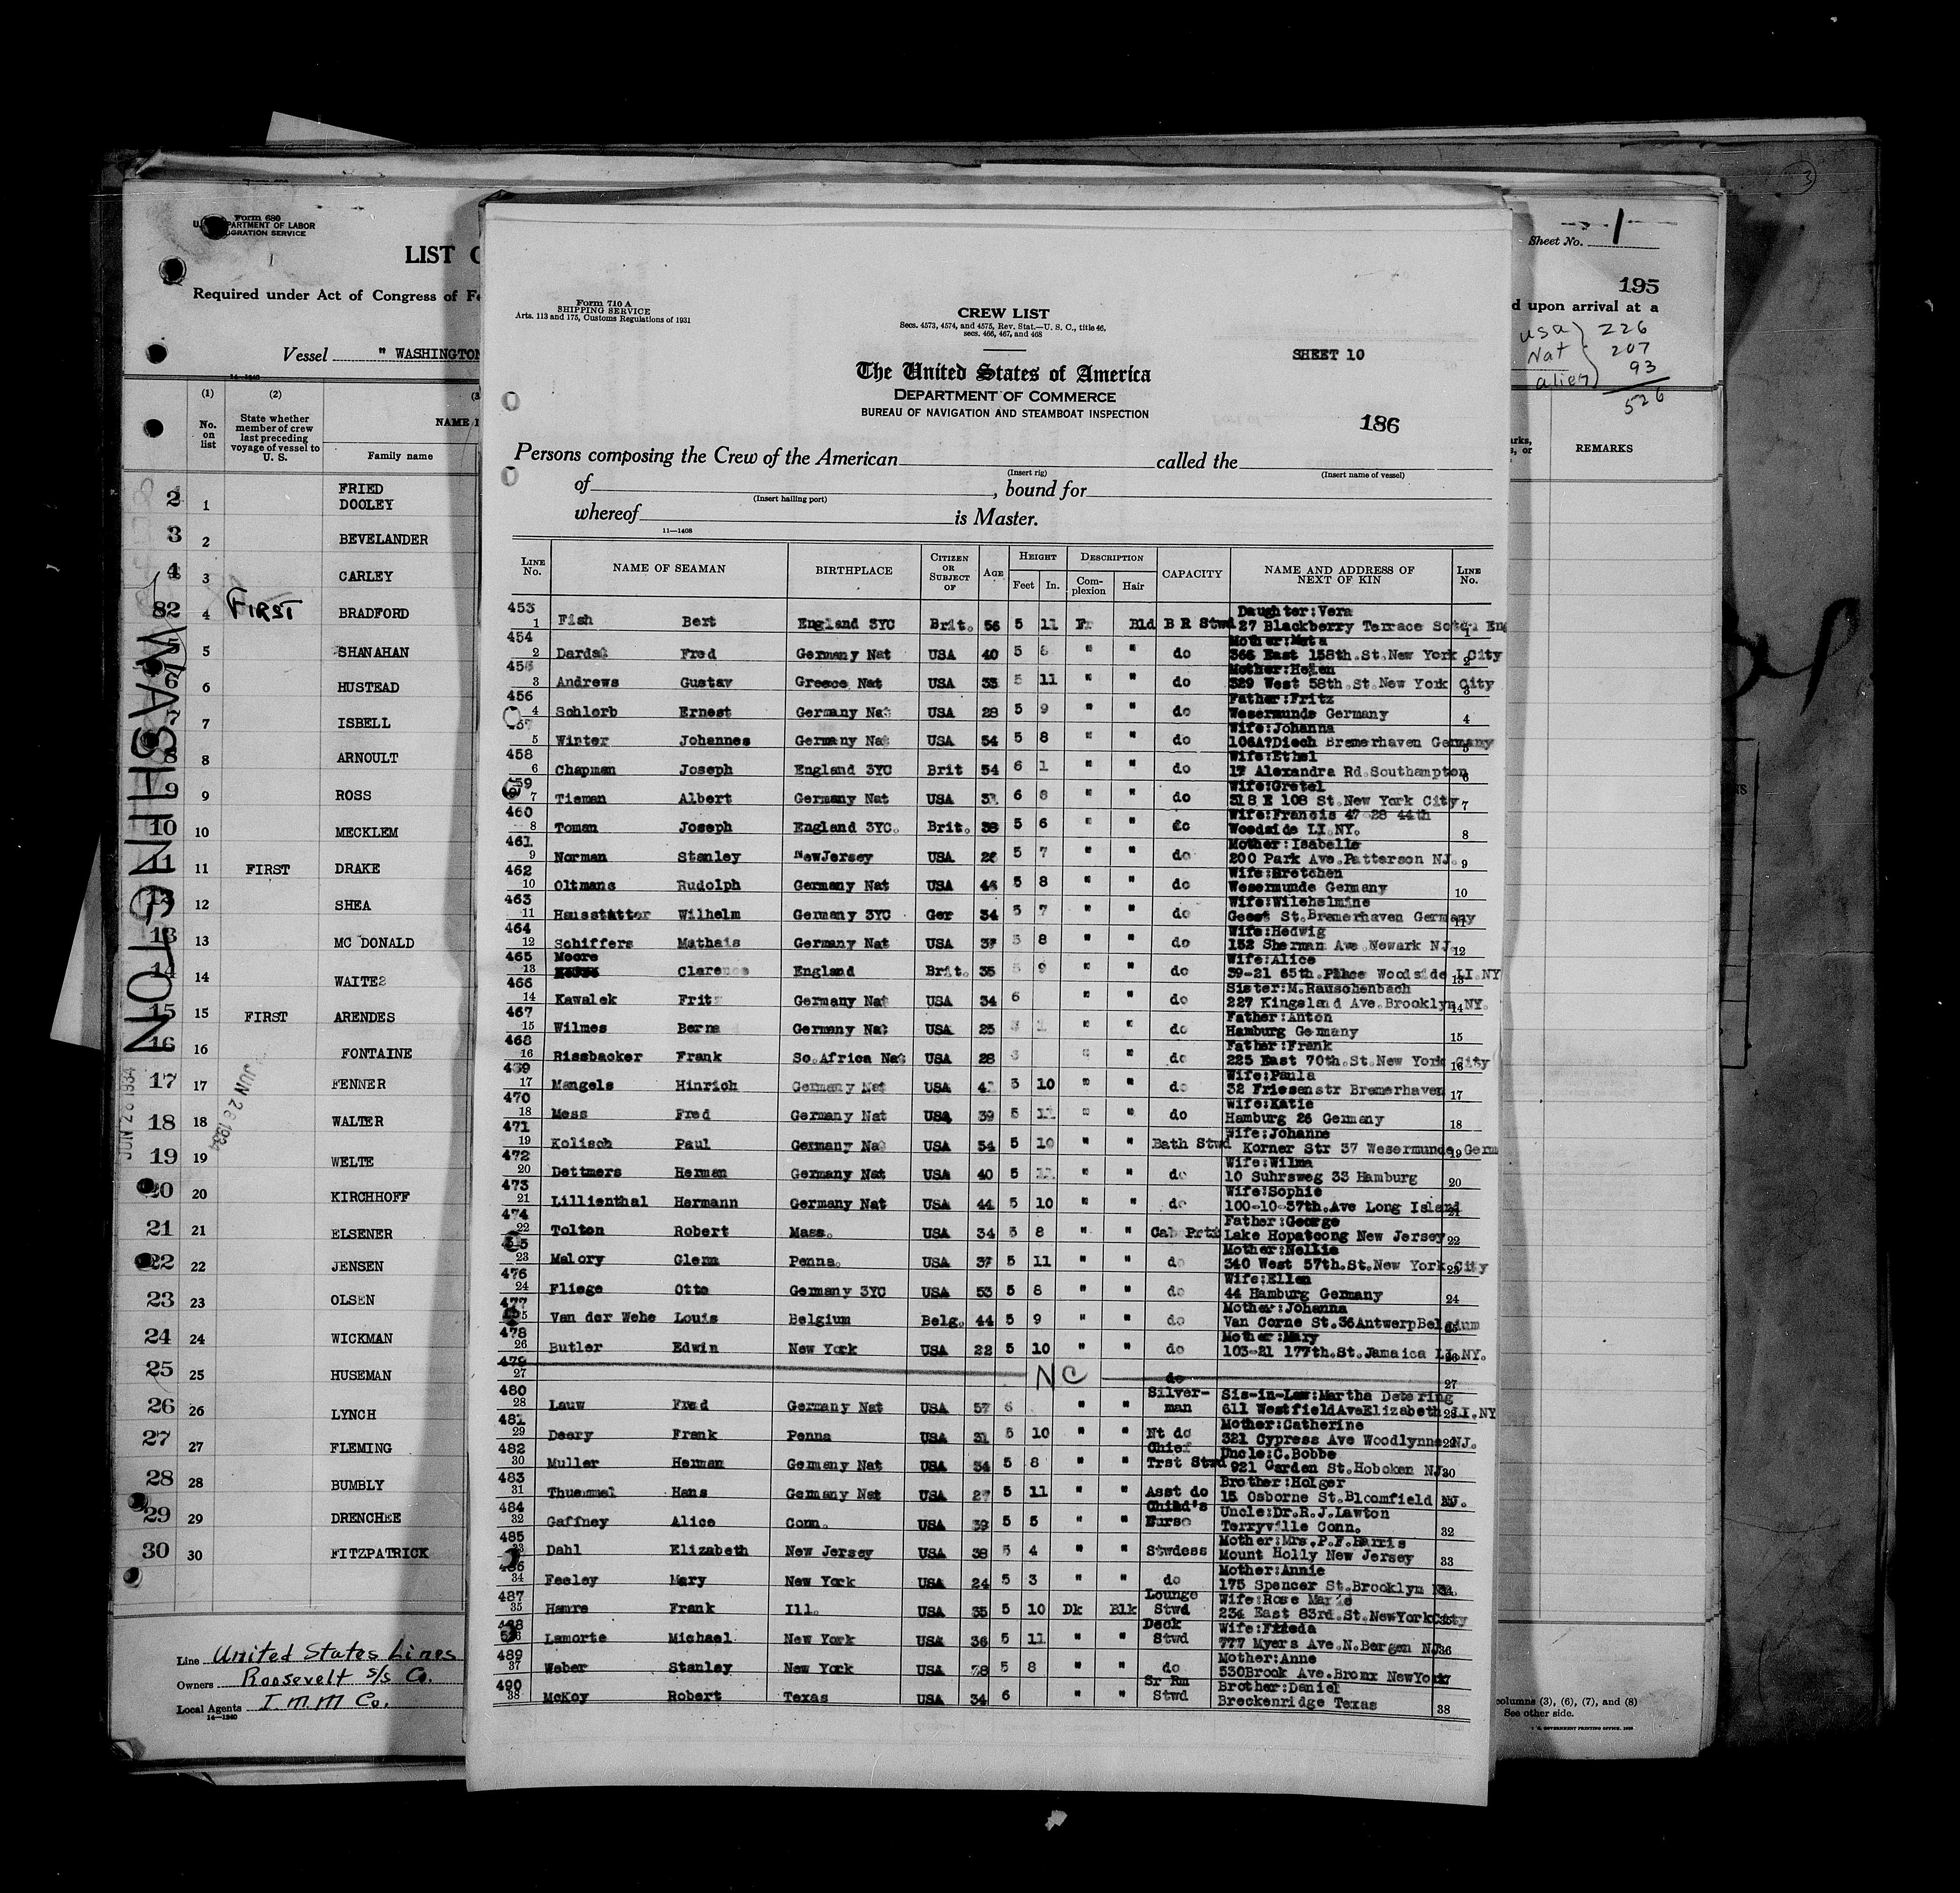 Form 680
U. DEPARTMENT OF LABOR
IMMIGRATION SERVICE
LIST O
Required under Act of Congress of Fe
Vessel " WASHINGTON
14—1240
(1) (2) (3
No. on list
State whether member of crew last preceding voyage of vessel to U. S.
NAME I
Family name
2 1 FRIED
DOOLEY
3 2 BEVELANDER
4 3 CARLEY
82 4 FIRST BRADFORD
5 5 SHANAHAN
6 6 HUSTEAD
7 7 ISBELL
8 8 ARNOULT
9 9 ROSS
10 10 MECKLEM
11 11 FIRST DRAKE
12 12 SHEA
13 13 MC DONALD
14 14 WAITES
15 15 FIRST ARENDES
16 16 FONTAINE
17 17 FENNER
18 18 WALTER
19 19 WELTE
20 20 KIRCHHOFF
21 21 ELSENER
22 22 JENSEN
23 23 OLSEN
24 24 WICKMAN
25 25 HUSEMAN
26 26 LYNCH
27 27 FLEMING
28 28 BUMBLY
29 29 DRENCHEE
30 30 FITZPATRICK
WASHINGTON
JUN 28 1934
JUN 28 1934
Line United States Lines
Owners Roosevelt s/s Co.
Local Agents I.M.M Co.
14—1240
Form 710 A
SHIPPING SERVICE
Arts. 113 and 175, Customs Regulations of 1931
CREW LIST
Secs. 4573, 4574, and 4575, Rev. Stat.—U. S. C., title 46,
secs. 466, 467, and 468
SHEET 10
The United States of America
DEPARTMENT OF COMMERCE
BUREAU OF NAVIGATION AND STEAMBOAT INSPECTION
186
Persons composing the Crew of the American called the
(Insert rig) (Insert name of vessel)
of , bound for
(Insert hailing port)
whereof is Master.
11—1408
LINE No. NAME OF SEAMAN BIRTHPLACE CITIZEN OR SUBJECT OF AGE HEIGHT Feet In. DESCRIPTION Complexion Hair CAPACITY NAME AND ADDRESS OF NEXT OF KIN LINE No.
453 Daughter:Vera
1 Fish Bert England 3YC Brit. 56 5 11 Fr Bld B R Stwd 27 Blackberry Terrace 1
454 Mother:Meta
2 Fred Germany Nat USA 40 5 8 " " do 366 East 158th.St.New York City 2
455 Mother:Helen
3 Andrews Gustav Greece Nat USA 33 5 11 " " do 329 West 58th.St.New York City 3
456 Father:Fritz
4 Schlorb Ernest Germany Nat USA 28 5 9 " " do Wesermunde Germany 4
457 Wife:Johanna
5 Winter Johannes Germany Nat USA 54 5 8 " " do Bremerhaven Germany 5
458 Wife:Ethel
6 Chapman Joseph England 3YC Brit 54 6 1 " " do 17 Alexandra Rd.Southampton 6
459 Wife:Gretel
7 Tieman Albert Germany Nat USA 6 8 " " do 318 E 108 St.New York City 7
460 Wife:Francis 47 28 44th
8 Toman Joseph England 3YC. Brit. 38 5 6 " " do Woodside LI.NY. 8
461 Mother:Isabelle
9 Norman Stanley NewJersey USA 26 5 7 " " do 200 Park Ave.Patterson NJ. 9
462 Wife:Gretchen
10 Oltmans Rudolph Germany Nat USA 46 5 8 " " do Wesermunde Germany 10
463 Wife:Wilehelmine
11 Hausstatter Wilhelm Germany 3YC Ger 34 5 7 " " do Geest St.Bremerhaven Germany 11
464 Wife:Hedwig
12 Schiffers Mathais Germany Nat USA 37 5 8 " " do 152 Sherman Ave.Newark NJ. 12
465 Moore Wife:Alice
13 Clarence England Brit. 35 5 9 " " do 39-21 65th.Place Woodside LI.NY 13
466 Sister:M.Rauschenbach
14 Kawalek Fritz Germany Nat USA 34 6 " " do 227 Kingsland Ave.Brooklyn NY. 14
467 Father:Anton
15 Wilmes Berna Germany Nat USA 25 " " do Hamburg Germany 15
468 Father:Frank
16 Rissbacker Frank So.Africa Nat USA 28 " " do 225 East 70th.St.New York City 16
469 Wife:Paula
17 Mangels Hinrich Germany Nat USA 5 10 " " do 32 Friesenstr Bremerhaven 17
470 Wife:Katie
18 Mess Fred Germany Nat USA 39 5 11 " " do Hamburg 26 Germany 18
471 Wife:Johanne
19 Kolisch Paul Germany Nat USA 54 5 10 " " Bath Stwd Korner Str 37 Wesermunde Germ 19
472 Wife:Wilma
20 Dettmers Herman Germany Nat USA 40 5 " " do 10 Suhrsweg 33 Hamburg 20
473 Wife:Sophie
21 Lillienthal Hermann Germany Nat USA 44 5 10 " " do 100-10-37th.Ave Long Island 21
474 Father:George
22 Tolten Robert Mass. USA 34 5 8 " " Cab Prtr Lake Hopatcong New Jersey 22
475 Mother:Nellie
23 Malory Glenn Penna. USA 37 5 11 " " do 340 West 57th.St.New York City 23
476 Wife:Ellen
24 Fliege Otto Germany 3YC USA 53 5 8 " " do 44 Hamburg Germany 24
477 Mother:Johanna
25 Van der Wehe Louis Belgium Belg. 44 5 9 " " do Van Corne St.36AntwerpBelgium 25
478 Mother:Mary
26 Butler Edwin New York USA 22 5 10 " " do 103-21 177th.St.Jamaica LI.NY. 26
479
27 NC do 27
480 Silver- Sis-in-Law:Martha Detering
28 Lauw Fred Germany Nat USA 57 6 " " man 611 WestfieldAveElizabeth LI.NY 28
481 Mother:Catherine
29 Deery Frank Penna USA 31 5 10 " " Nt do 321 Cypress Ave Woodlynne NJ. 29
482 Chief Uncle:C.Bobbe
30 Muller Herman Germany Nat USA 34 5 8 " " Trst Stwd 921 Garden St.Hoboken NJ. 30
483 Brother:Holger
31 Thuemmel Hans Germany Nat USA 27 5 11 " " Asst do 15 Osborne St.Bloomfield NJ. 31
484 Child's Uncle:Dr.R.J.Lawton
32 Gaffney Alice Conn. USA 39 5 5 " " Nurse Terryville Conn. 32
485 Mother:Mrs.P.F.Harris
33 Dahl Elizabeth New Jersey USA 38 5 4 " " Stwdess Mount Holly New Jersey 33
486 Mother:Annie
34 Feeley Mary New York USA 24 5 3 " " do 175 Spencer St.Brooklyn 34
487 Lounge Wife:Rose Marie
35 Hamre Frank Ill. USA 35 5 10 Dk Blk Stwd 234 East 83rd.St.NewYorkCity 35
488 Deck Wife:Frieda
36 Lamorte Michael New York USA 36 5 11 " " Stwd 777 Myers Ave.N.Bergen NJ. 36
489 Mother:Anne
37 Weber Stanley New York USA 5 8 " " do 530Brook Ave.Bronx NewYork 37
490 Sr Rm Brother:Daniel
38 McKoy Robert Texas USA 34 6 " " Stwd Breckenridge Texas 38
3
Sheet No. 1
195
d upon arrival at a
USA 226
Nat 207
alien 93
526
rks,
s, or
REMARKS
columns (3), (6), (7), and (8)
See other side.
U. S. GOVERNMENT PRINTING OFFICE